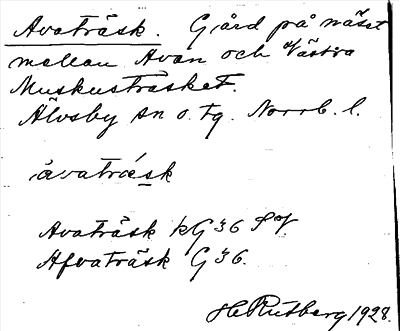 Avaträsk. Gård på näset
mellan Avan och Västra
Muskusträsket.
Älvsby sn o. tg. Norrb. l.
åvaträsk
Avaträsk kG36 SV.
Afvaträsk G36.
H Rutberg 1928.